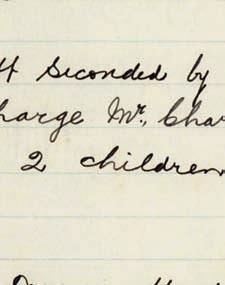 seconded by
harge Mr. Char
2 children